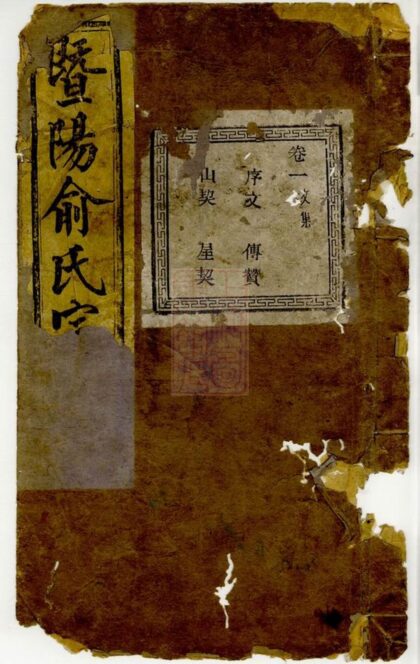 卷一 文集
序文 傳贊
山契 屋契
暨陽俞氏